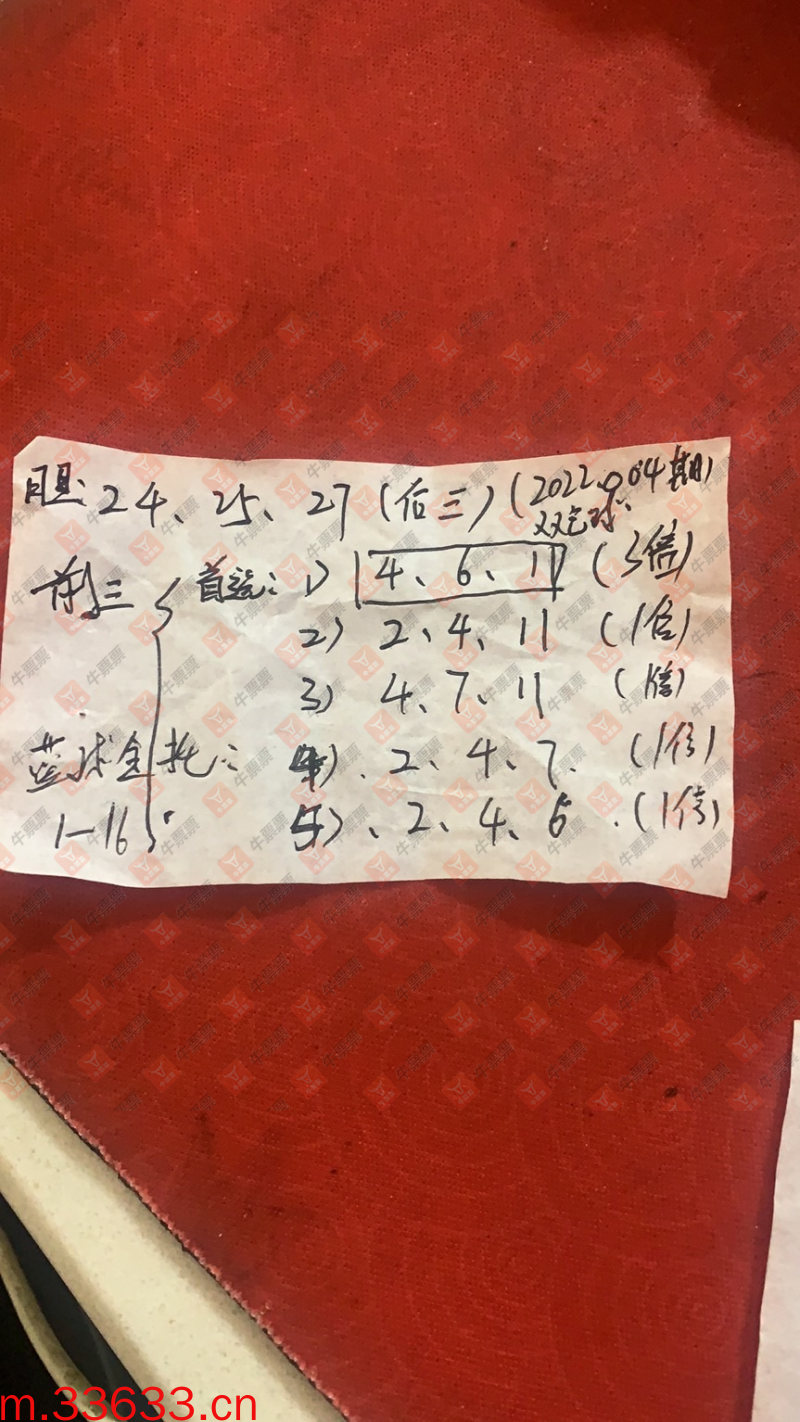 胆: 24、25、27 (后三) (2022、004期)
双色球
前三 首选: 1) 4、6、11 (3倍)
2) 2、4、11 (1倍)
3) 4、7、11 (1倍)
蓝球全托: 4)、2、4、7、 (1倍)
1-16 5)、2、4、6 .(1倍)
牛票票
m.33633.cn